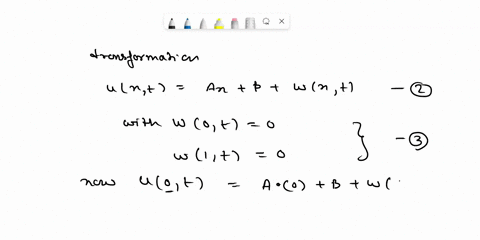 transformation
u(x,t) = Ax + B + w(x,t) — ②
with w(0,t) = 0
w(1,t) = 0 } — ③
now u(0,t) = A•(0) + B + w(